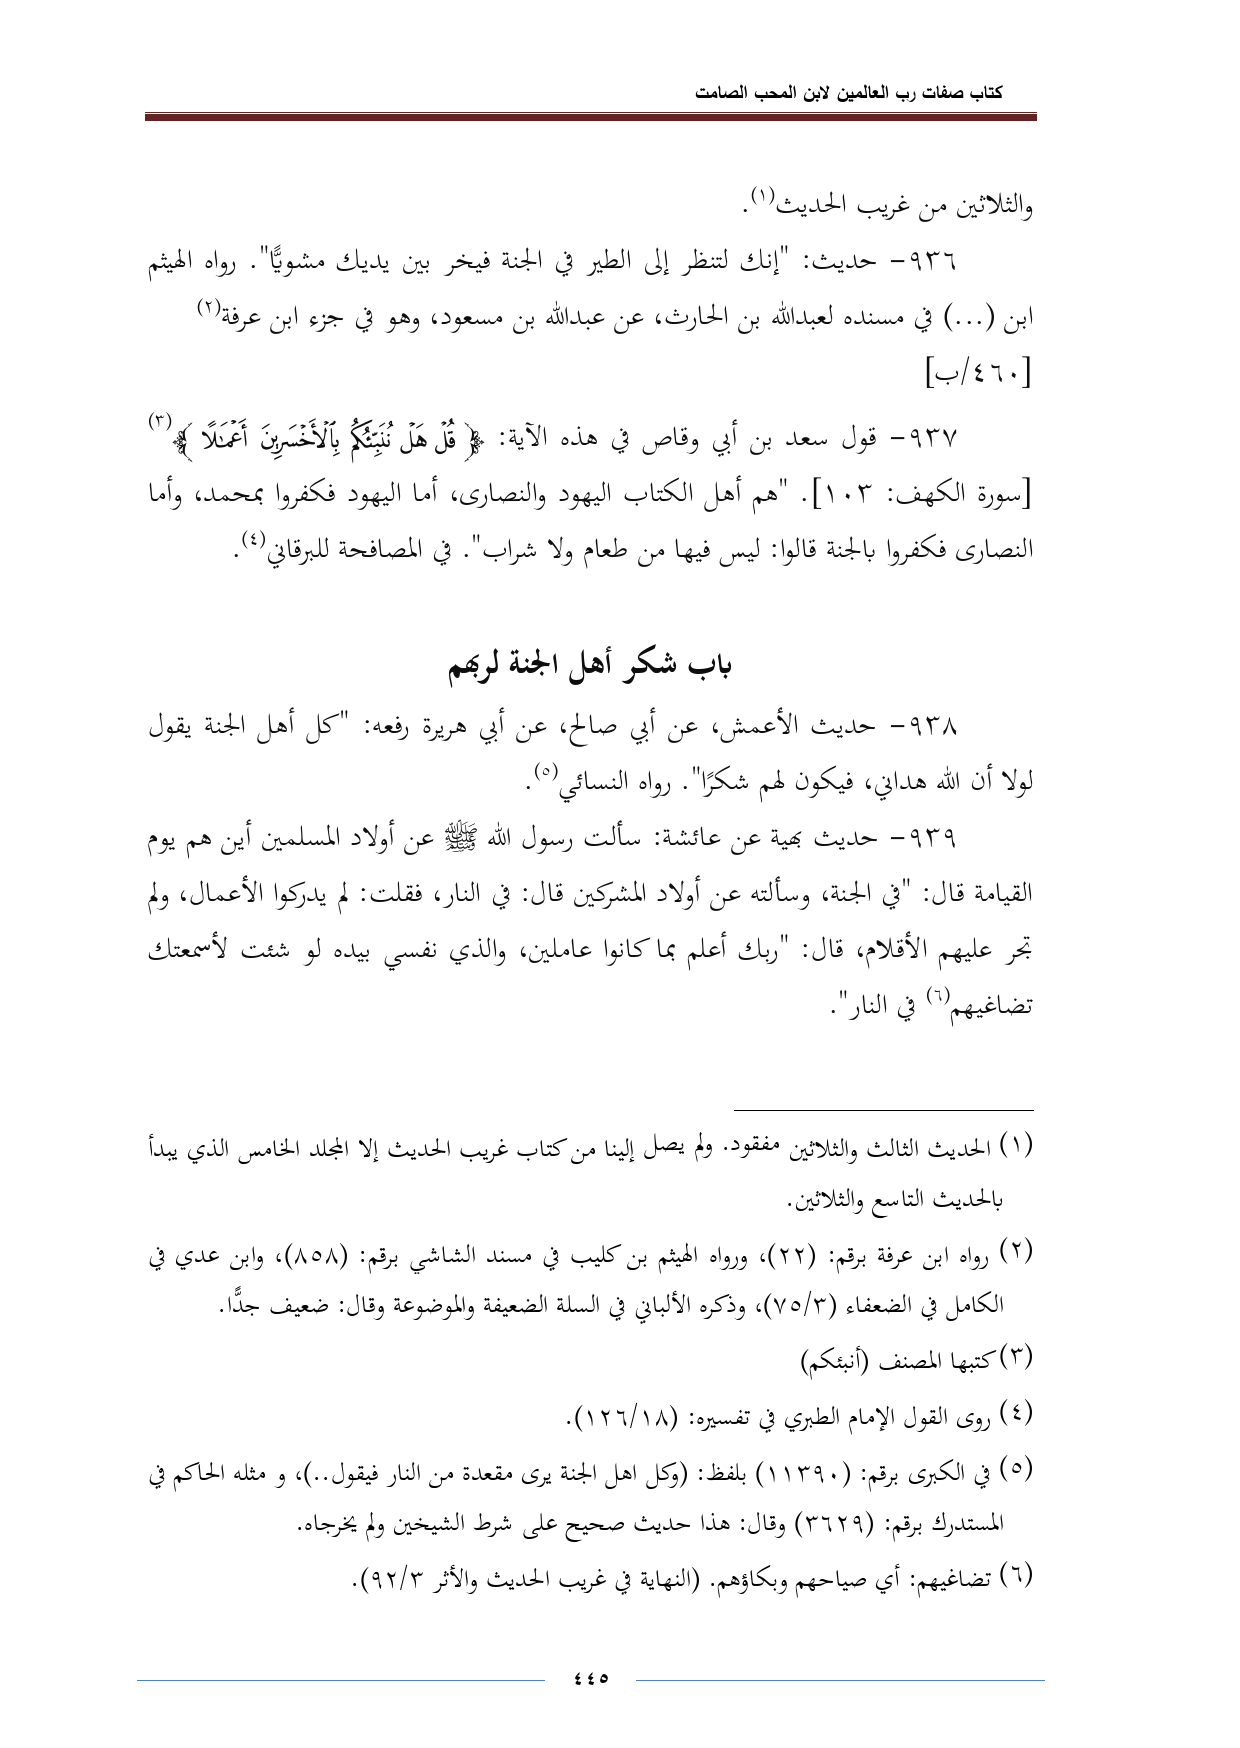 كتاب صفات رب العالمين لابن المحب الصامت
والثلاثين من غريب الحديث(١).
٩٣٦- حديث: "إنك لتنظر إلى الطير في الجنة فيخر بين يديك مشويًّا". رواه الهيثم
ابن (...) في مسنده لعبدالله بن الحارث، عن عبدالله بن مسعود، وهو في جزء ابن عرفة(٢)
[٤٦٠/ب]
٩٣٧- قول سعد بن أبي وقاص في هذه الآية: ﴿قُلْ هَلْ نُنَبِّئُكُم بِٱلْأَخْسَرِينَ أَعْمَـٰلًا﴾(٣)
[سورة الكهف: ١٠٣]. "هم أهل الكتاب اليهود والنصارى، أما اليهود فكفروا بمحمد، وأما
النصارى فكفروا بالجنة قالوا: ليس فيها من طعام ولا شراب". في المصافحة للبرقاني(٤).
باب شكر أهل الجنة لربهم
٩٣٨- حديث الأعمش، عن أبي صالح، عن أبي هريرة رفعه: "كل أهل الجنة يقول
لولا أن الله هداني، فيكون لهم شكرًا". رواه النسائي(٥).
٩٣٩- حديث بهية عن عائشة: سألت رسول الله ﷺ عن أولاد المسلمين أين هم يوم
القيامة قال: "في الجنة، وسألته عن أولاد المشركين قال: في النار، فقلت: لم يدركوا الأعمال، ولم
تجر عليهم الأقلام، قال: "ربك أعلم بما كانوا عاملين، والذي نفسي بيده لو شئت لأسمعتك
تضاغيهم(٦) في النار".
(١) الحديث الثالث والثلاثين مفقود. ولم يصل إلينا من كتاب غريب الحديث إلا المجلد الخامس الذي يبدأ
بالحديث التاسع والثلاثين.
(٢) رواه ابن عرفة برقم: (٢٢)، ورواه الهيثم بن كليب في مسند الشاشي برقم: (٨٥٨)، وابن عدي في
الكامل في الضعفاء (٧٥/٣)، وذكره الألباني في السلة الضعيفة والموضوعة وقال: ضعيف جدًّا.
(٣) كتبها المصنف (أنبئكم)
(٤) روى القول الإمام الطبري في تفسيره: (١٢٦/١٨).
(٥) في الكبرى برقم: (١١٣٩٠) بلفظ: (وكل اهل الجنة يرى مقعدة من النار فيقول..)، و مثله الحاكم في
المستدرك برقم: (٣٦٢٩) وقال: هذا حديث صحيح على شرط الشيخين ولم يخرجاه.
(٦) تضاغيهم: أي صياحهم وبكاؤهم. (النهاية في غريب الحديث والأثر ٩٢/٣).
٤٤٥